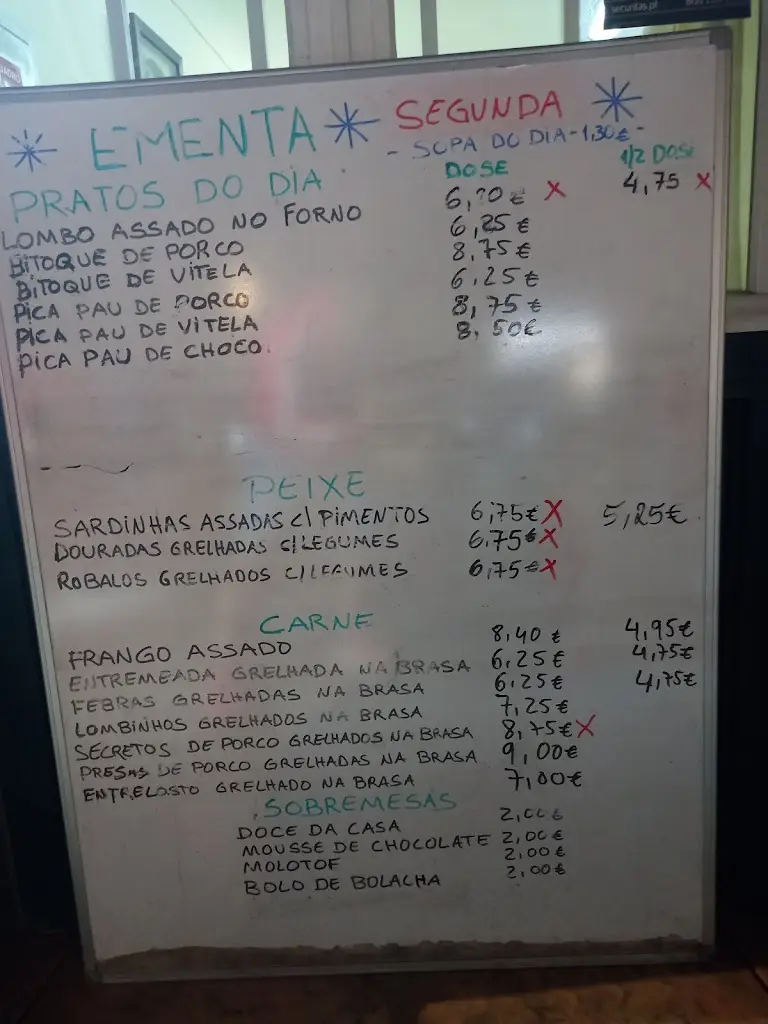 securitas.pt
* EMENTA * SEGUNDA *
- SOPA DO DIA - 1,30€ -
PRATOS DO DIA DOSE 1/2 DOSE
LOMBO ASSADO NO FORNO X 4,75 X
BITOQUE DE PORCO 6,25€
BITOQUE DE VITELA 8,75€
PICA PAU DE PORCO 6,25€
PICA PAU DE VITELA 8,75€
PICA PAU DE CHOCO. 8,50€
PEIXE
SARDINHAS ASSADAS C/ PIMENTOS 6,75€ X 5,25€
DOURADAS GRELHADAS C/ LEGUMES 6,75€ X
ROBALOS GRELHADOS C/ LEGUMES 6,75€ X
CARNE
FRANGO ASSADO 8,40€ 4,95€
ENTREMEADA GRELHADA NA BRASA 6,25€ 4,75€
FEBRAS GRELHADAS NA BRASA 6,25€ 4,75€
LOMBINHOS GRELHADOS NA BRASA 7,25€
SECRETOS DE PORCO GRELHADOS NA BRASA 8,75€ X
PRESAS DE PORCO GRELHADAS NA BRASA 9,00€
ENTRELOSTO GRELHADO NA BRASA 7,00€
SOBREMESAS
DOCE DA CASA 2,00€
MOUSSE DE CHOCOLATE 2,00€
MOLOTOF 2,00€
BOLO DE BOLACHA 2,00€